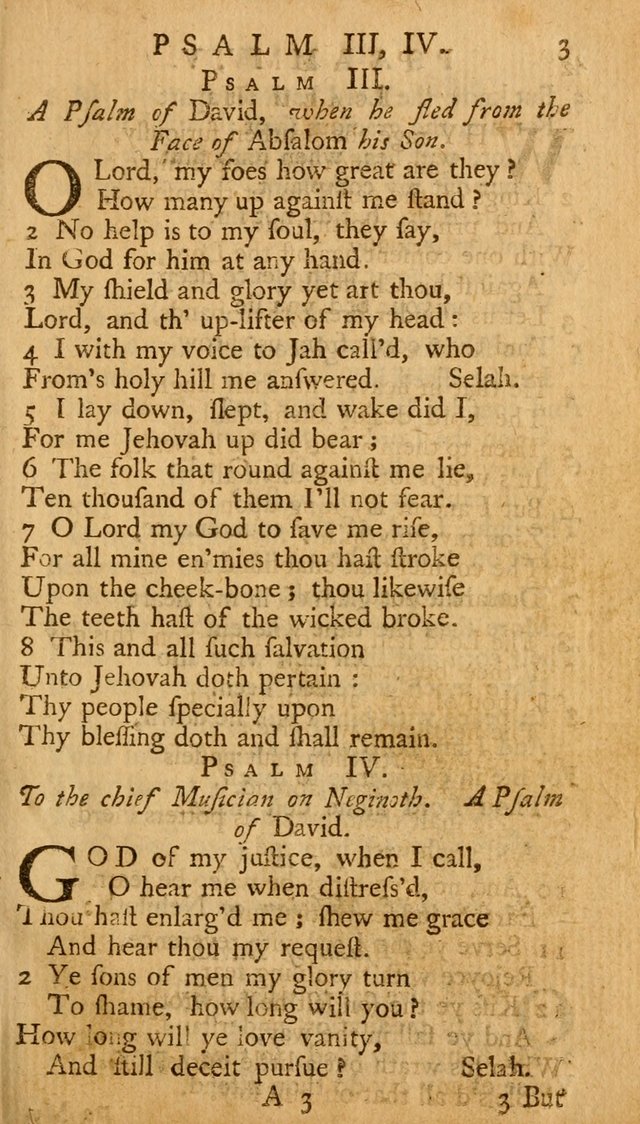 PSALM III, IV. 3
PSALM III.
A Pſalm of David, when he fled from the
Face of Abſalom his Son.
O Lord, my foes how great are they?
How many up againſt me ſtand?
2 No help is to my ſoul, they ſay,
In God for him at any hand.
3 My ſhield and glory yet art thou,
Lord, and th' up-lifter of my head:
4 I with my voice to Jah call'd, who
From's holy hill me anſwered. Selah.
5 I lay down, ſlept, and wake did I,
For me Jehovah up did bear;
6 The folk that round againſt me lie,
Ten thouſand of them I'll not fear.
7 O Lord my God to ſave me riſe,
For all mine en'mies thou haſt ſtroke
Upon the cheek-bone; thou likewiſe
The teeth haſt of the wicked broke.
8 This and all ſuch ſalvation
Unto Jehovah doth pertain:
Thy people ſpecially upon
Thy bleſſing doth and ſhall remain.
PSALM IV.
To the chief Muſician on Neginoth. A Pſalm
of David.
GOD of my juſtice, when I call,
O hear me when diſtreſs'd,
Thou haſt enlarg'd me; ſhew me grace
And hear thou my requeſt.
2 Ye ſons of men my glory turn
To ſhame, how long will you?
How long will ye love vanity,
And ſtill deceit purſue? Selah.
A 3 3 But